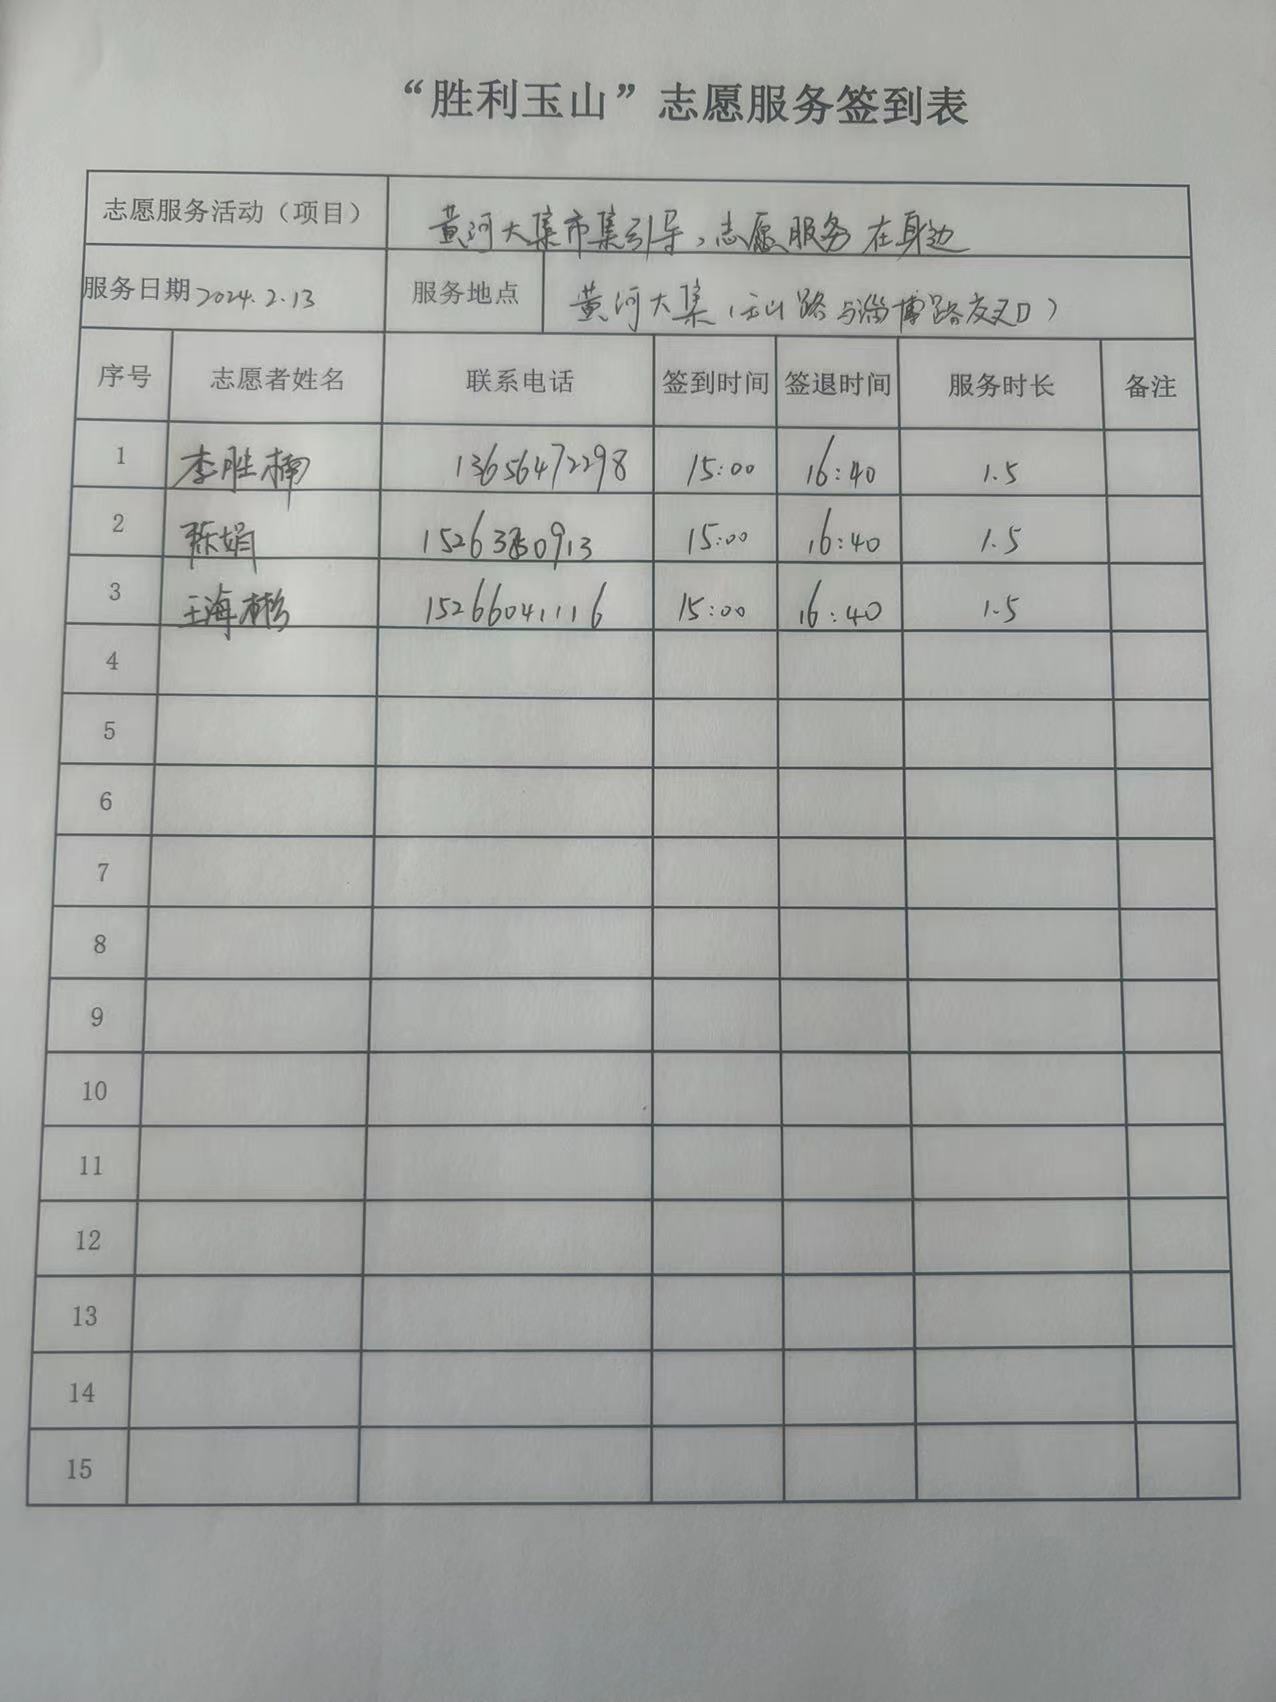 “胜利玉山”志愿服务签到表
志愿服务活动（项目） 黄河大集市集引导，志愿服务在身边
服务日期 2024.2.13 服务地点 黄河大集（玉山路与淄博路交叉口）
序号 志愿者姓名 联系电话 签到时间 签退时间 服务时长 备注
1 李胜楠 13656472298 15:00 16:40 1.5
2 陈娟 15:00 16:40 1.5
3 王海彬 15266041116 15:00 16:40 1.5
4
5
6
7
8
9
10
11
12
13
14
15